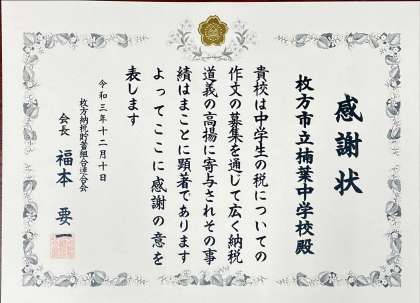 感謝状
枚方市立楠葉中学校殿
貴校は中学生の税についての
作文の募集を通して広く納税
道義の高揚に寄与されその事
績はまことに顕著であります
よってここに感謝の意を
表します
令和三年十二月十日
枚方納税貯蓄組合連合会
会長 福本 要一